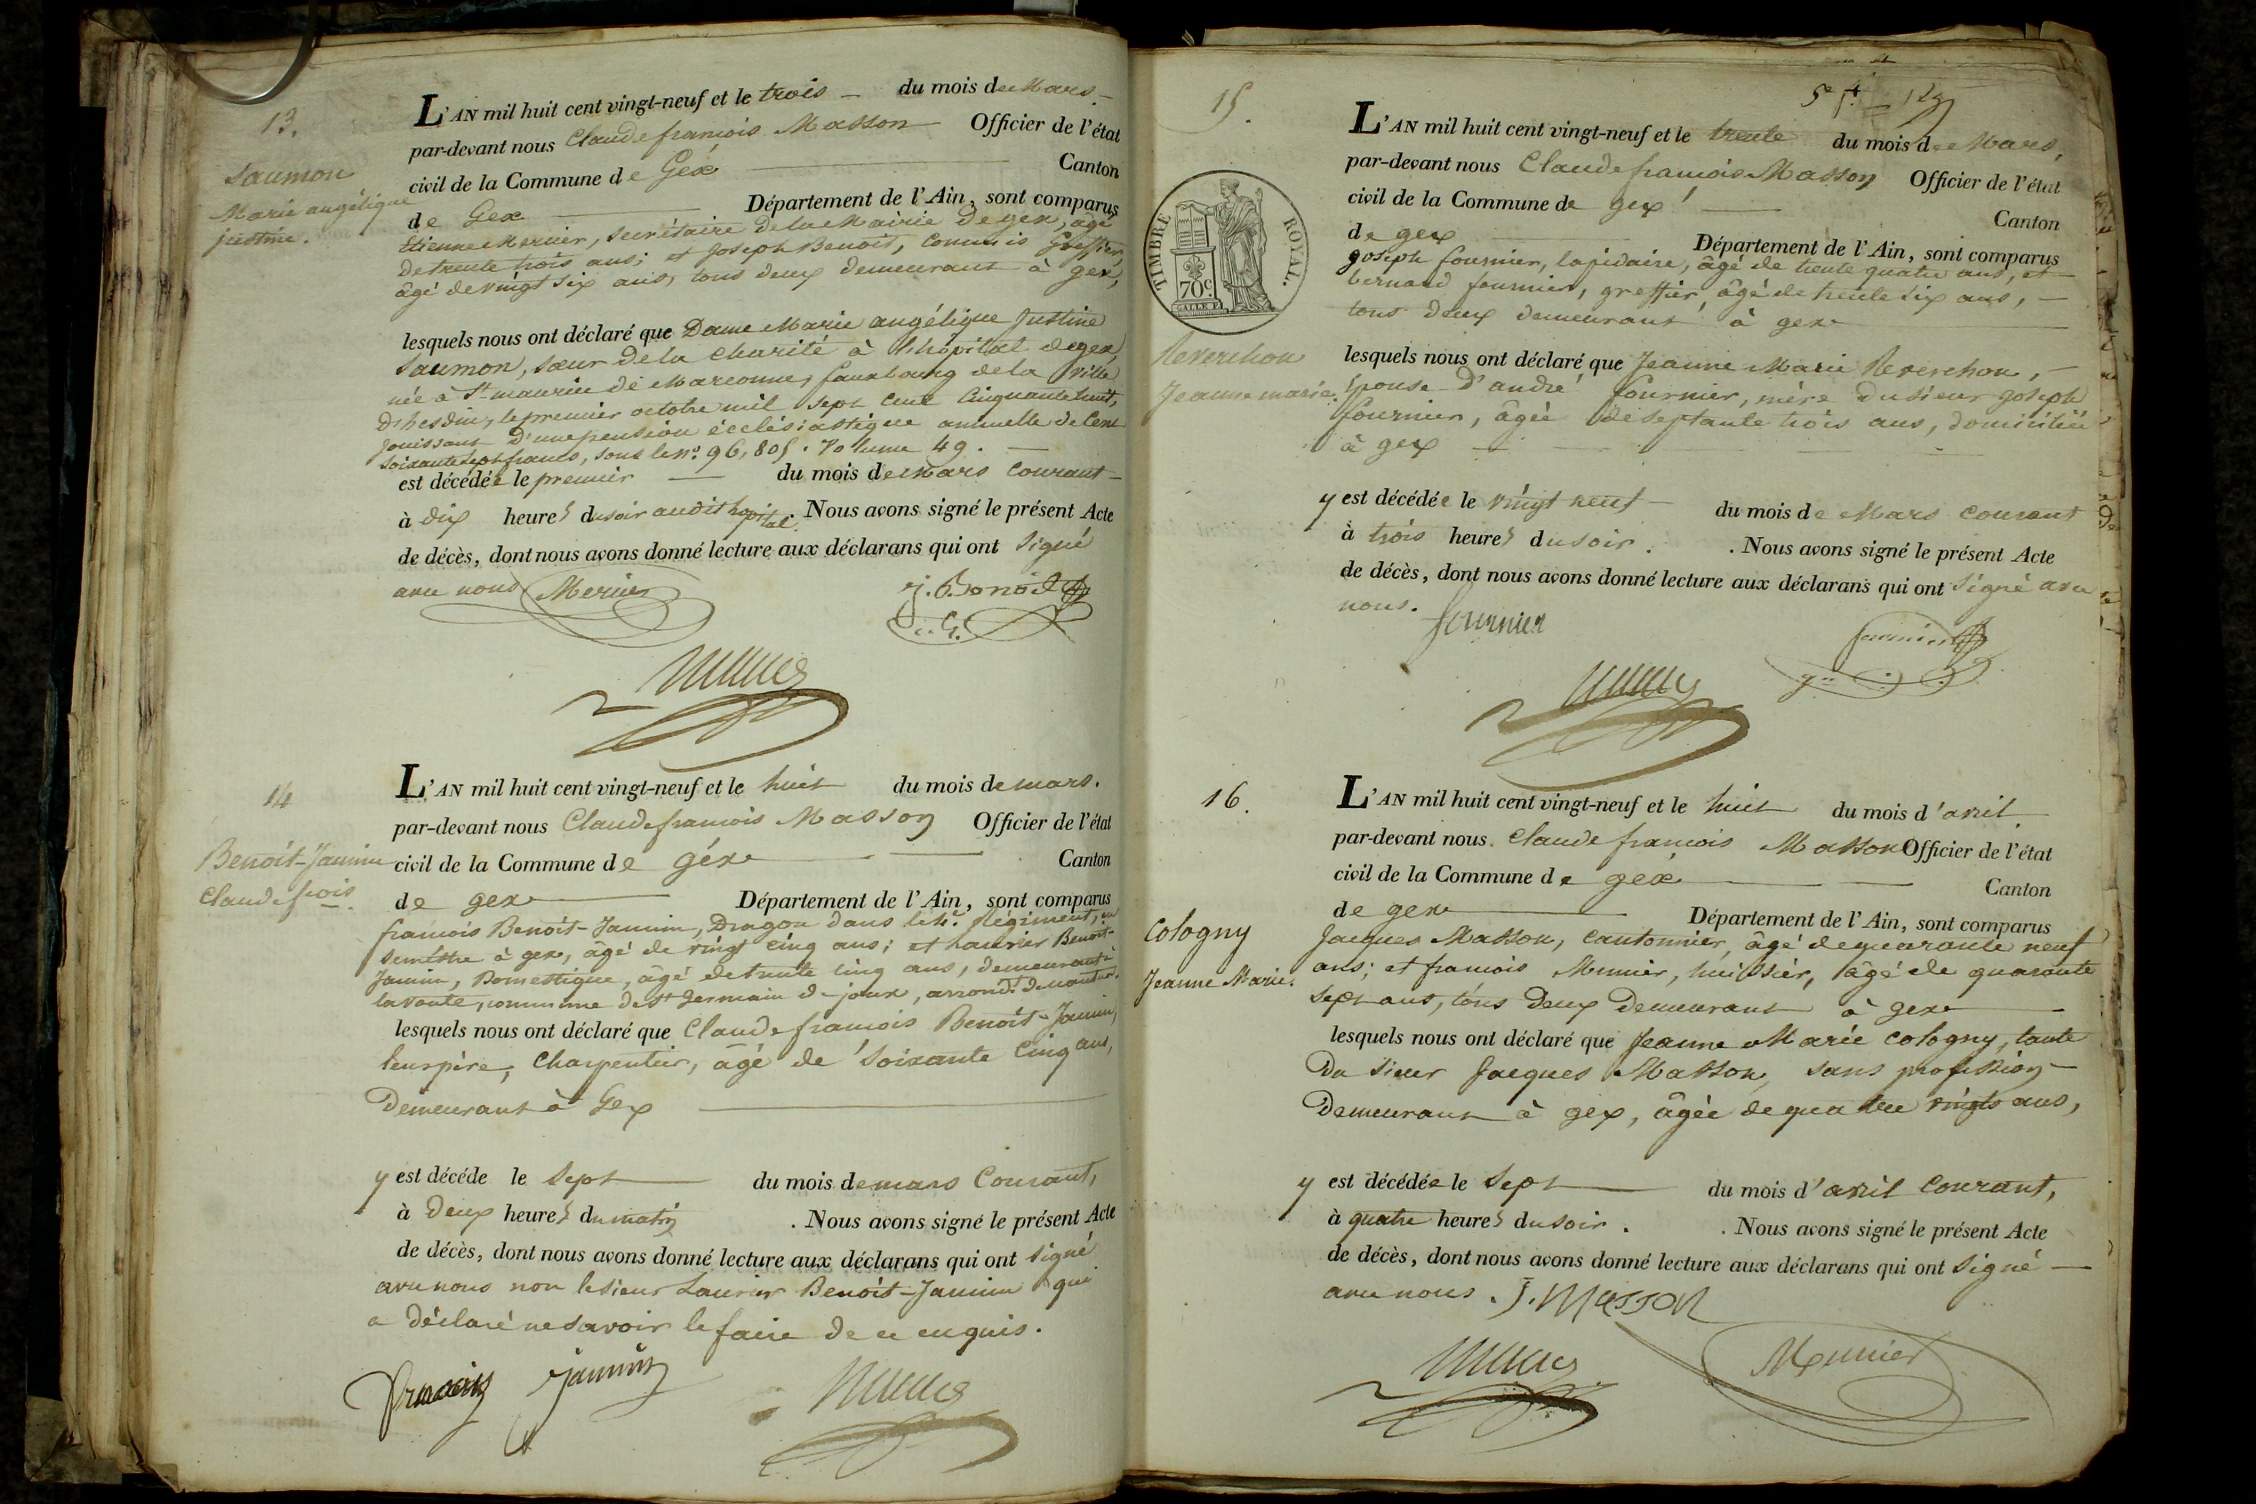 13.
Saumon
Marie angélique
justine.
L'AN mil huit cent vingt-neuf et le trois du mois de Mars
par-devant nous Claude françois Masson Officier de l'état
civil de la Commune de Géx Canton
de Gex Département de l'Ain, sont comparus
Etienne Mercier, secrétaire de la Mairie de gex, âgé
de trente trois ans; et Joseph Benoit, Commis Greffier,
âgé de vingt six ans, tous deux demeurant à gex,
lesquels nous ont déclaré que Dame Marie angélique Justine
Saumon, sœur de la charité à l'hôpital de gex,
née à St. maurice de Marconne, fauxbourg de la ville
d'hesdin, le premier octobre mil sept cent Cinquante huit,
Jouissant d'une pension écclésiastique annuelle de Cent
soixante sept francs, sous le no. 96,805. Volume 49.
est décédée le premier du mois de Mars courant
à dix heures du soir audit hopital. Nous avons signé le présent Acte
de décès, dont nous avons donné lecture aux déclarans qui ont signé
avec nous Mercier J. Benoit
c. G.
14
Benoit-Jannin
Claude fçois.
L'AN mil huit cent vingt-neuf et le huit du mois de mars.
par-devant nous Claude francois Masson Officier de l'état
civil de la Commune de géx Canton
de gex Département de l'Ain, sont comparus
francois Benoit-Jannin, Dragon dans le 4e. Régiment, en
semestre à gex, âgé de vingt cinq ans; et Laurier Benoit-
Jannin, Domestique, âgé de trente cinq ans, demeurant à
lavoute, commune de St germain de joux, arrondt. de nantua.
lesquels nous ont déclaré que Claude francois Benoit-Jannin,
leur père, Charpentier, âgé de soixante cinq ans,
Demeurant à Gex
y est décédé le sept du mois de mars Courant,
à Deux heures du matin . Nous avons signé le présent Acte
de décès, dont nous avons donné lecture aux déclarans qui ont signé
avec nous non le sieur Laurier Benoit-Jannin qui
a déclaré ne savoir le faire de ce enquis.
francois Jannin
15.
5e f.
TIMBRE ROYAL.
70c
Reverchon
Jeanne marie.
L'AN mil huit cent vingt-neuf et le trente du mois de Mars,
par-devant nous Claude francois Masson Officier de l'état
civil de la Commune de gex Canton
de gex Département de l'Ain, sont comparus
Joseph fournier, lapidaire, âgé de trente quatre ans, et
bernard fournier, greffier, âgé de trente six ans,
tous deux demeurant à gex
lesquels nous ont déclaré que Jeanne Marie Reverchon,
Epouse d'andré fournier, mère du sieur Joseph
fournier, âgée de septante trois ans, domiciliée
à gex
y est décédée le vingt neuf du mois de Mars courant
à trois heures du soir. . Nous avons signé le présent Acte
de décès, dont nous avons donné lecture aux déclarans qui ont signé avec
nous. fournier
fournier
16.
Cologny
Jeanne Marie.
L'AN mil huit cent vingt-neuf et le huit du mois d'avril
par-devant nous Claude francois Masson Officier de l'état
civil de la Commune de géx Canton
de gex Département de l'Ain, sont comparus
Jacques Masson, cantonnier, âgé de quarante neuf
ans; et francois Munier, huissier, âgé de quarante
sept ans, tous deux demeurant à gex
lesquels nous ont déclaré que Jeanne Marie Cologny, tante
Du sieur Jacques Masson, sans profession
Demeurant à gex, âgée de quatre vingts ans,
y est décédée le sept du mois d'avril courant,
à quatre heures du soir. . Nous avons signé le présent Acte
de décès, dont nous avons donné lecture aux déclarans qui ont signé
avec nous. J. Masson
Munier